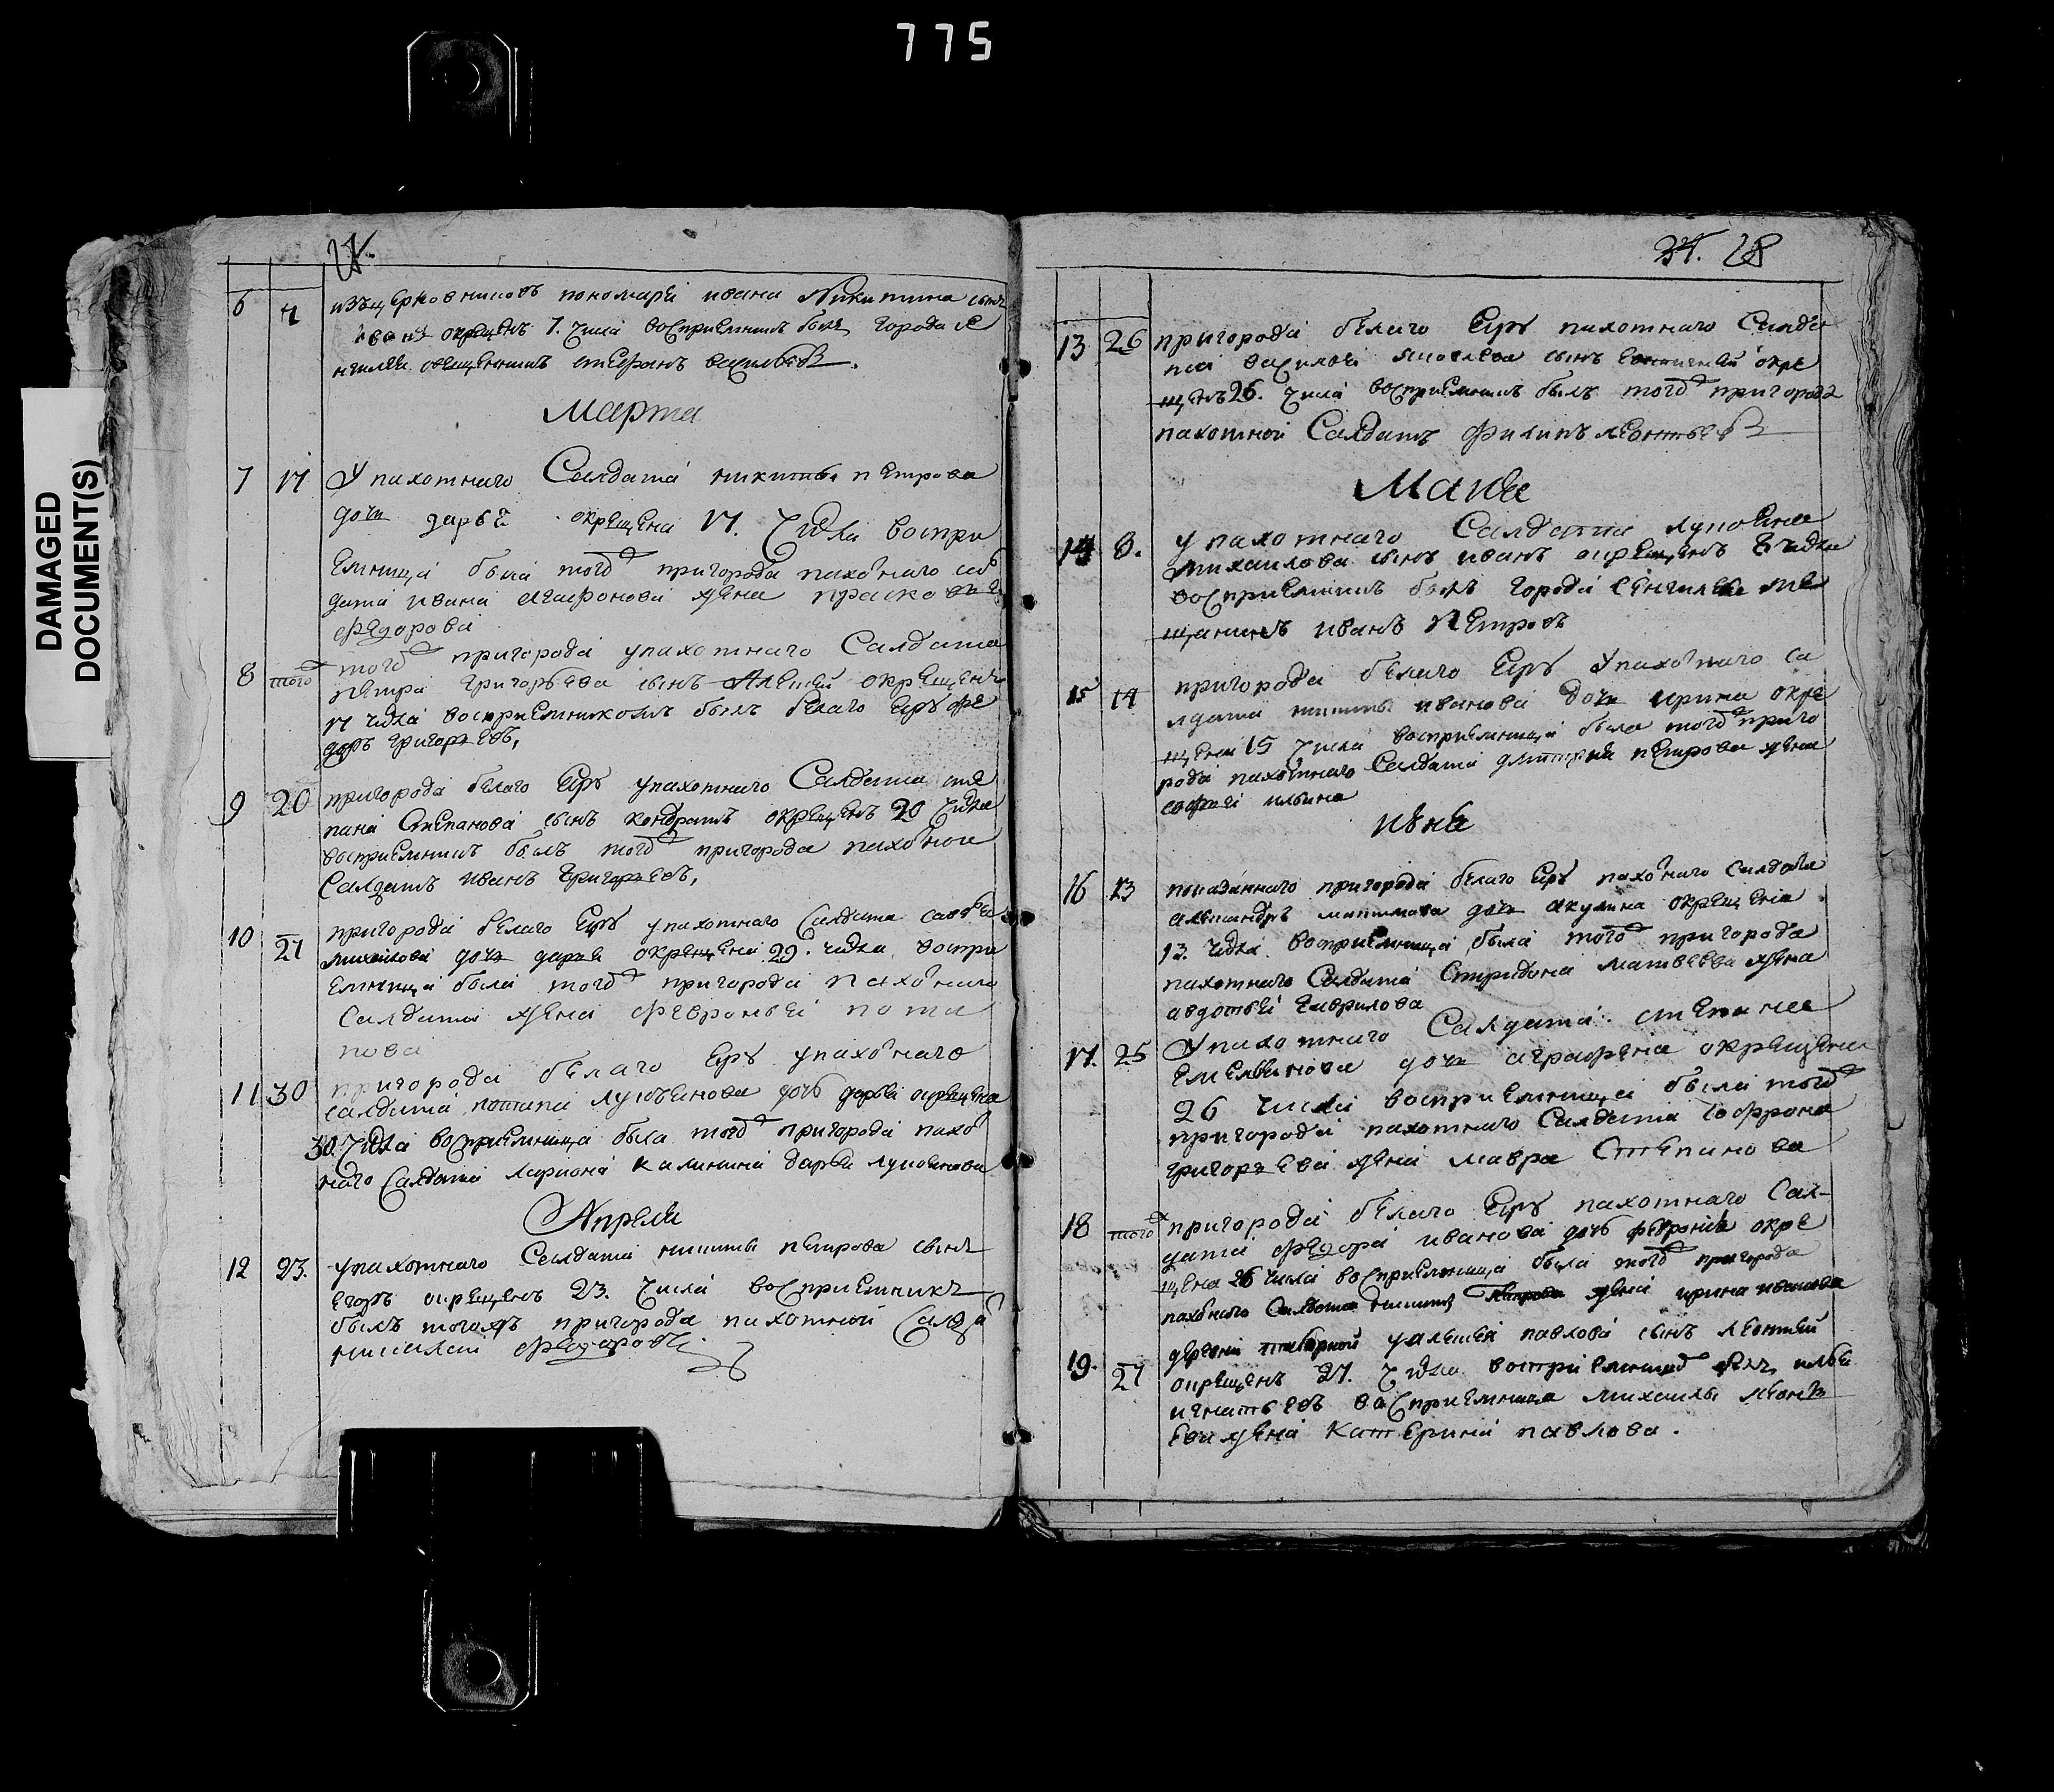 775
DAMAGED
DOCUMENT(S)
27.
6 7 изъ церковниковъ пономаря ивана Никитина сынъ
иванъ окрещенъ 7. числа восприемникъ былъ города се
нгилея священникъ стефанъ васильевъ.
Марта
7 17 У пахотнаго Салдата никиты петрова
дочь дарья окрещена 17. числа воспри
емница была тогоже пригорода пахотнаго сал
дата ивана агафонова жена прасковья
федорова
8 того тогоже пригорода упахотнаго Салдата
петра григорьева сынъ Алексей окрещенъ
17 числа восприемникомъ былъ белаго Еру фе
доръ григорьевъ,
9 20 пригорода белаго Еру упахотнаго Салдата сте
пана Степанова сынъ кондратъ окрещенъ 20 числа
восприемникъ былъ тогоже пригорода пахотной
Салдатъ иванъ григорьевъ,
10 27 пригорода белаго Еру упахотнаго Салдата савелья
михайлова дочь дарья окрещена 29. числа воспри
емница была тогоже пригорода пахотнаго
Салдата жена февронья пота
пова
11 30 пригорода белаго Еру упахотнаго
салдата потапа лукьянова дочь дарья окрещена
30. числа восприемница была тогоже пригорода пахот
наго Салдата лариона калинина дарья лукоянова
Апреля
12 23. упахотнаго Салдата никиты петрова сынъ
егоръ окрещенъ 23. числа восприемникъ
былъ тогожъ пригорода пахотной Салда
николай федоровъ
37. 28
13 26 пригорода белаго Еру пахотнаго Салда
та василья яковлева сынъ окре
щенъ 26. числа восприемникъ былъ тогоже пригорода
пахотной Салдатъ филипъ леонтьевъ
Маия
14 8. упахотнаго Салдата лукояна
михаилова сынъ иванъ окрещенъ 8 числа
восприемникъ былъ города сенгилея ме
щанинъ иванъ Петровъ
15 14 пригорода белаго Еру Упахотнаго са
лдата никиты иванова дочь ирина окре
щена 15 числа восприемница была тогоже приго
рода пахотнаго Салдата дмитрия петрова жена
софья ильина
июня
16 13 показаннаго пригорода белаго Еру пахотнаго Салдата
александръ дочь акулина окрещена
13. числа восприемница была тогоже пригорода
пахотнаго Салдата Спиридона Матвеева жена
авдотья гаврилова
17. 25 Упахотнаго Салдата степана
емельянова дочь аграфена окрещена
26 числа восприемница была тогоже
пригорода пахотнаго Салдата софрона
григорьева жена мавра Степанова
18 того пригорода белаго Еру пахотнаго Сал-
дата федора иванова дочь феврониа окре
щена 26 числа восприемница была тогоже пригорода
пахотнаго Салдата никиты жена ирина иванова
19. 27 деревни уалексея павлова сынъ леонтей
окрещенъ 27. числа восприемникъ былъ илья
игнатьевъ восприемница михаилы леонть
ева жена Катерина павлова.